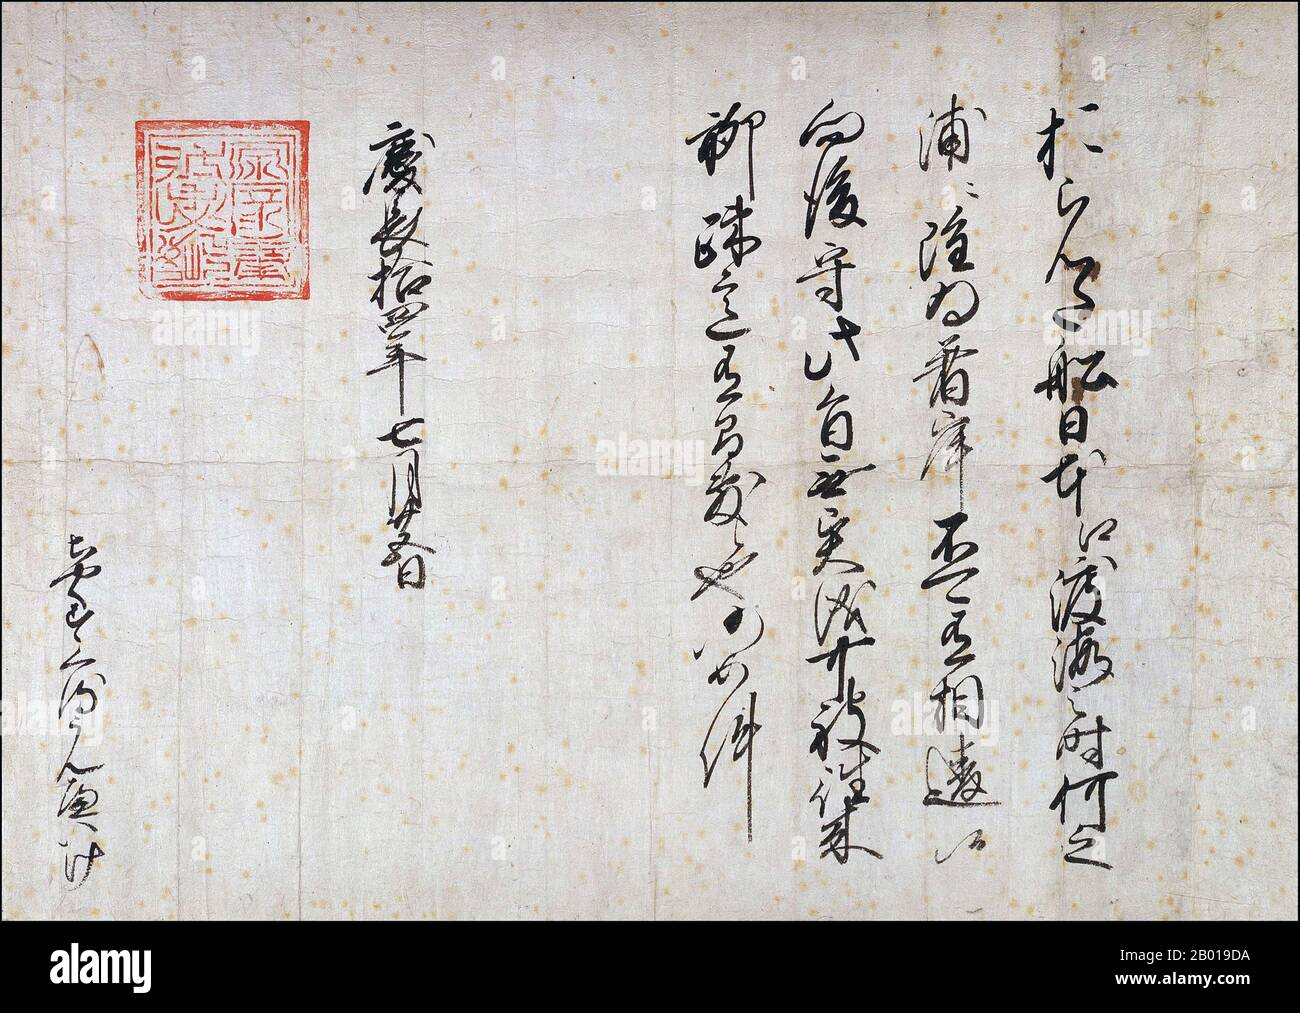 おらんだ船日本江渡海之時何之
浦ニ雖為着岸不可有相違候
向後守此旨無異儀可被往来
聊疎意有間敷候也仍如件
慶長拾四年七月廿五日
ちやくすくるうんへいけ
alamy
Image ID: 2B019DA
www.alamy.com